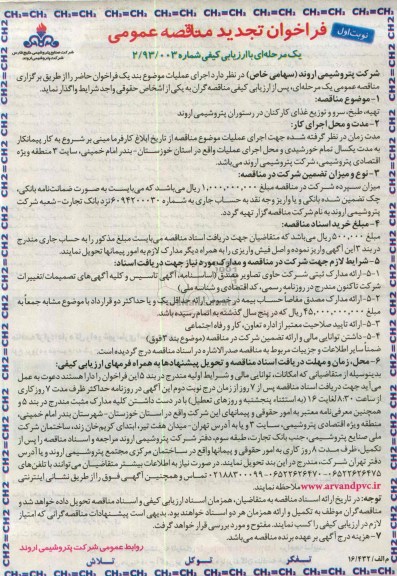 نوبت اول
فراخوان تجدید مناقصه عمومی
یک مرحله‌ای با ارزیابی کیفی شماره ۲/۹۳/۰۰۳
شرکت پتروشیمی اروند (سهامی خاص) در نظر دارد اجرای عملیات موضوع بند یک فراخوان حاضر را از طریق برگزاری
مناقصه عمومی یک مرحله‌ای، پس از ارزیابی کیفی مناقصه گران به یکی از اشخاص حقوقی واجد شرایط واگذار نماید.
۱- موضوع مناقصه:
تهیه، طبخ، سرو و توزیع غذای کارکنان در رستوران پتروشیمی اروند
۲- مدت و محل اجرای کار:
مدت زمان در نظر گرفته شده جهت اجرای عملیات موضوع مناقصه از تاریخ ابلاغ کارفرما مبنی بر شروع به کار پیمانکار
به مدت یکسال تمام خورشیدی و محل اجرای عملیات واقع در استان خوزستان- بندر امام خمینی، سایت ۳ منطقه ویژه
اقتصادی پتروشیمی، شرکت پتروشیمی اروند می‌باشد.
۳- نوع و میزان تضمین شرکت در مناقصه:
میزان سپرده شرکت در مناقصه مبلغ ۱,۰۰۰,۰۰۰,۰۰۰ ریال می‌باشد که می‌بایست به صورت ضمانت‌نامه بانکی،
چک تضمین شده بانکی و یا واریز وجه نقد به حساب جاری به شماره ۶۰۹۴۲۰۰۰۳۰ نزد بانک تجارت- شعبه شرکت
پتروشیمی اروند به نام شرکت مناقصه گزار تهیه گردد.
۴- مبلغ خرید اسناد مناقصه:
مبلغ ۵۰۰,۰۰۰ ریال می‌باشد که متقاضیان جهت دریافت اسناد مناقصه می‌بایست مبلغ مذکور را به حساب جاری مندرج
در بند ۳ این آگهی واریز نموده و اصل فیش واریزی را به همراه دیگر مدارک لازم به امور پیمانها تحویل نمایند.
۵- شرایط لازم جهت شرکت در مناقصه و مدارک مورد نیاز جهت دریافت اسناد:
۵-۱- ارائه مدارک ثبتی شرکت حاوی تصاویر مصدق (اساسنامه، آگهی تاسیس و کلیه آگهی‌های تصمیمات تغییرات
شرکت تاکنون مندرج در روزنامه رسمی، کد اقتصادی و شناسه ملی)
۵-۲- ارائه مدارک مصدق مفاصا حساب بیمه در خصوص ارائه حداقل یک و یا حداکثر دو قرارداد با موضوع مشابه جمعاً به
مبلغ ۴۵,۰۰۰,۰۰۰,۰۰۰ ریال که در پنج سال گذشته به اتمام رسیده باشد.
۵-۳- ارائه تایید صلاحیت معتبر از اداره تعاون، کار و رفاه اجتماعی
۵-۴- داشتن توانایی مالی و ارائه تضمین شرکت در مناقصه (موضوع بند ۳ فوق)
ضمناً سایر اطلاعات و جزییات مربوط به مناقصه صدرالاشاره در اسناد مناقصه درج گردیده است.
۶- محل، زمان و مهلت دریافت اسناد مناقصه و تحویل پیشنهادها به همراه فرمهای ارزیابی کیفی:
بدینوسیله از متقاضیانی که امکانات، توانایی مالی و شرایط اولیه مندرج در بند ۵ این فراخوان را دارا هستند دعوت به عمل
می‌آید جهت دریافت اسناد مناقصه پس از ۷ روز از زمان درج نوبت دوم این آگهی در روزنامه حداکثر ظرف مدت ۷ روز کاری
از ساعت ۸:۳۰ لغایت ۱۶ (به استثناء پنجشنبه و روزهای تعطیل) با در دست داشتن کلیه مدارک مثبت مندرج در بند ۵ و
همچنین معرفی‌نامه معتبر به امور حقوقی و پیمانهای این شرکت واقع در استان خوزستان- شهرستان بندر امام خمینی،
منطقه ویژه اقتصادی پتروشیمی، سایت ۳ و یا به آدرس تهران- میدان هفت تیر، ابتدای کریم خان زند، ساختمان شرکت
ملی صنایع پتروشیمی، جنب بانک تجارت، طبقه سوم، دفتر شرکت پتروشیمی اروند مراجعه و اسناد مناقصه را پس از
تکمیل، ظرف مدت ۸ روز کاری به امور حقوقی و پیمانها واقع در ساختمان مرکزی مجتمع پتروشیمی اروند و یا آدرس
دفتر تهران شرکت، مندرج در این بند تحویل نمایند. در صورت نیاز به اطلاعات بیشتر متقاضیان می‌توانند با تلفن‌های
تماس و همچنین آگهی فوق را از طریق نشانی اینترنتی
www.arvandpvc.ir ملاحظه نمایند.
توجه: در تاریخ ارائه اسناد مناقصه به متقاضیان، همزمان اسناد ارزیابی کیفی و اسناد مناقصه تحویل داده خواهد شد و
مناقصه گران موظف به تکمیل و ارائه همزمان هر دو اسناد خواهند بود. بدیهی است پیشنهادات مناقصه گرانی که امتیاز
لازم در ارزیابی کیفی را کسب نمایند. مفتوح و مورد بررسی قرار خواهد گرفت.
۷- هزینه درج آگهی بر عهده برنده مناقصه می‌باشد.
روابط عمومی شرکت پتروشیمی اروند
تفکر توکل تلاش